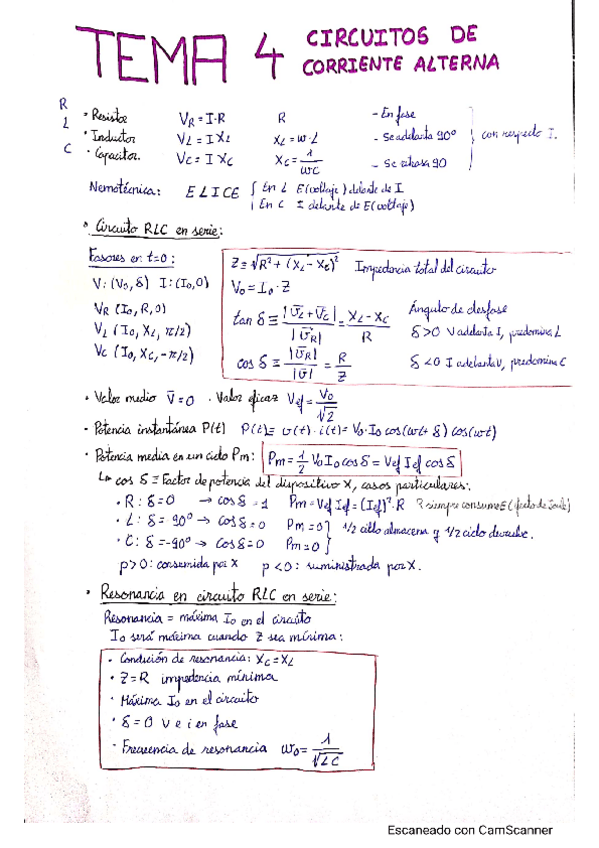 TEMA 4 CIRCUITOS DE
CORRIENTE ALTERNA
R · Resistor VR = I·R R - En fase
L · Inductor VL = I XL XL = ω·L - Se adelanta 90º con respecto I.
C · Capacitor. VC = I XC XC = 1/ωC - Se retrasa 90
Nemotécnica: ELICE { En L E(voltaje) delante de I
¡ En C I delante de E(voltaje)
· Circuito RLC en serie:
Fasores en t=0:
V: (V0, δ) I: (I0, 0)
VR (I0, R, 0)
VL (I0, XL, π/2)
VC (I0, XC, -π/2)
Z ≡ √R² + (XL - XC)² Impedancia total del circuito
V0 = I0 · Z
tan δ ≡ |VL + VC| / |VR| = XL - XC / R Ángulo de desfase
δ>0 V adelanta I, predomina L
cos δ ≡ |VR| / |V| = R / Z δ<0 I adelanta V, predomina C
· Valor medio V = 0 · Valor eficaz Vef = V0/√2
· Potencia instantánea P(t) P(t) = v(t) · i(t) = V0 · I0 cos(ωt + δ) cos(ωt)
· Potencia media en un ciclo Pm: Pm = 1/2 V0 I0 cos δ = Vef Ief cos δ
↳ cos δ ≡ Factor de potencia del dispositivo X, casos particulares:
· R: δ = 0 → cos δ = 1 Pm = Vef Ief = (Ief)² · R R siempre consume E (efecto de Joule)
· L: δ = 90º → cos δ = 0 Pm = 0 } 1/2 ciclo almacena y 1/2 ciclo devuelve.
· C: δ = -90º → cos δ = 0 Pm = 0
p>0: consumida por X p<0: suministrada por X.
· Resonancia en circuito RLC en serie:
Resonancia = máxima I0 en el circuito
I0 será máxima cuando Z sea mínima:
· Condición de resonancia: XC = XL
· Z = R impedancia mínima
· Máxima I0 en el circuito
· δ = 0 V e i en fase
· Frecuencia de resonancia ω0 = 1/√LC
Escaneado con CamScanner